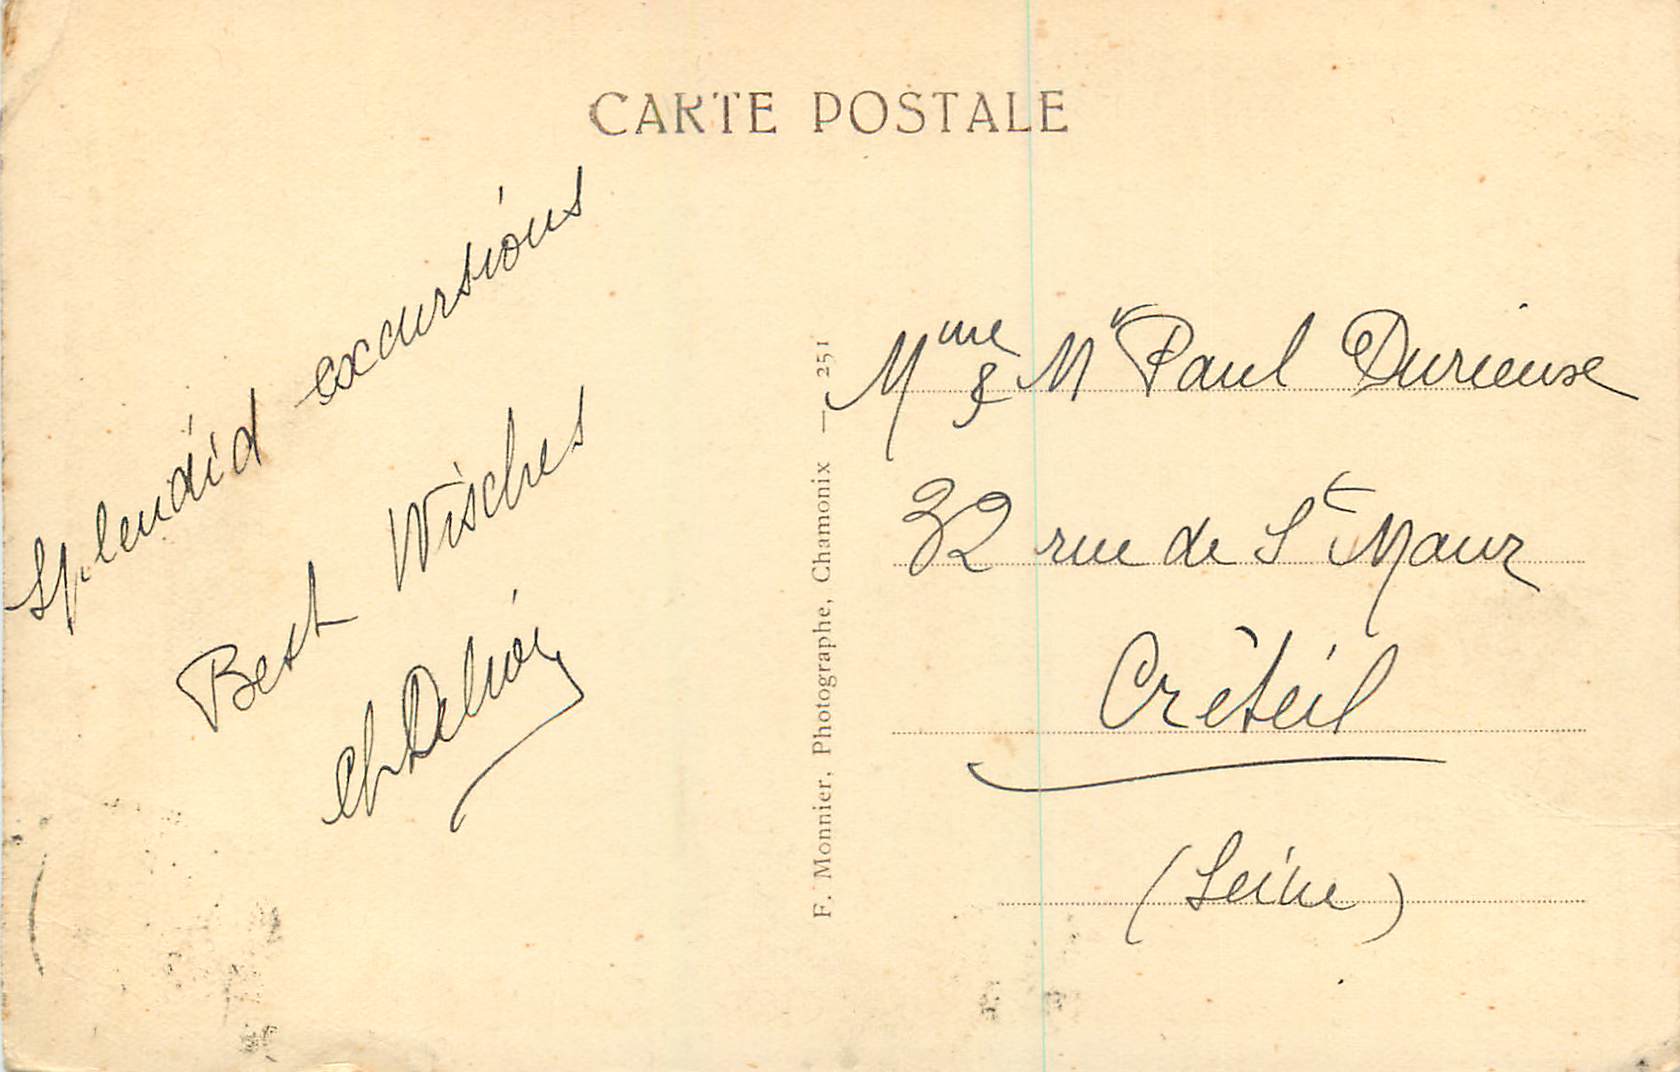 CARTE POSTALE
Splendid excursions
Best Wisches
F. Monnier, Photographe, Chamonix — 251
Mme & Mr Paul Durieuse
32 rue de St Maur
Créteil
(Seine)